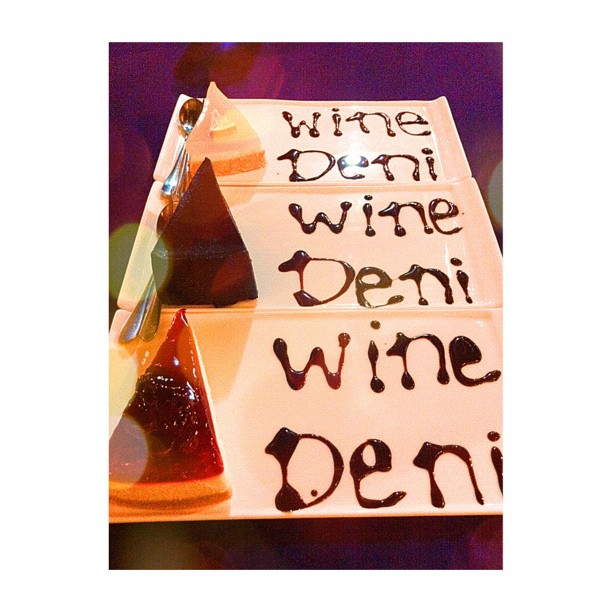 wine
Deni
wine
Deni
wine
Deni